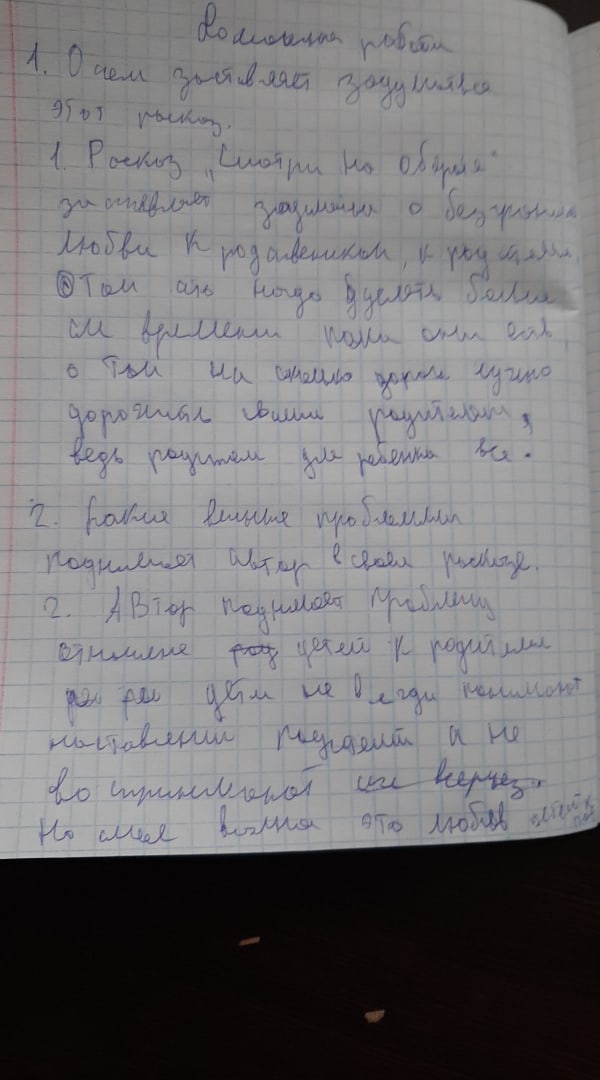 Домашняя работа
1. О чем заставляет задуматься
этот расказ.
1. Расказ „Смотри на облака"
заставляет о безграничной
любви к родствеником, к родителям,
О том что надо уделять больше
им времени пока они есть,
о том на сколько нужно
дорожить своими родителями,
ведь родители для ребенка все!
2. Какие проблемы
поднимает автор в своем расказе.
2. Автор поднимает проблему
отношение детей к родителям
дети не всегда понимают
наставлений родителей и не
воспринмают их всерьез.
Но самая важная это любовь детей к